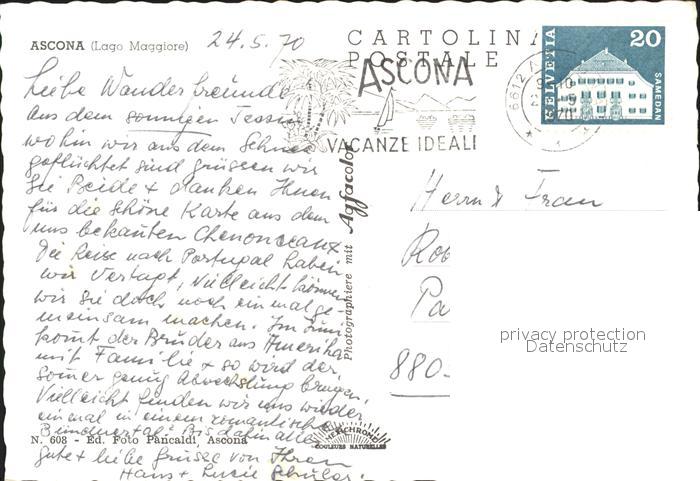 ASCONA (Lago Maggiore) 24.5.70
CARTOLINA
POSTALE
ASCONA
VACANZE IDEALI
HELVETIA
20
SAMEDAN
6612 A
Liebe Wanderfreunde
Aus dem sonnigen Tessin
wohin wir aus dem Schnee
geflüchtet sind grüssen wir
Sie Beide + danken Ihnen
für die schöne Karte aus dem
uns bekanten Chenonceaux
Die Reise nach Portugal haben
wir vertagt, vielleicht können
wir sie doch noch einmal ge-
meinsam machen. Im Juni
komt der Bruder aus Amerika
mit Familie + so wird der
Somer genug Abwechslung bringen.
Vielleicht finden wir uns wieder
einmal in einem romantischen
Bündnertal? Bis dahin alles
gute + liebe Grüsse von Ihren
Hans + Lucie Schuler.
N. 608 - Ed. Foto Pancaldi, Ascona
Photographiere mit Agfacolor
MEXICHROME
COULEURS NATURELLES
Herrn & Frau
Rob
Pa
880-
privacy protection
Datenschutz